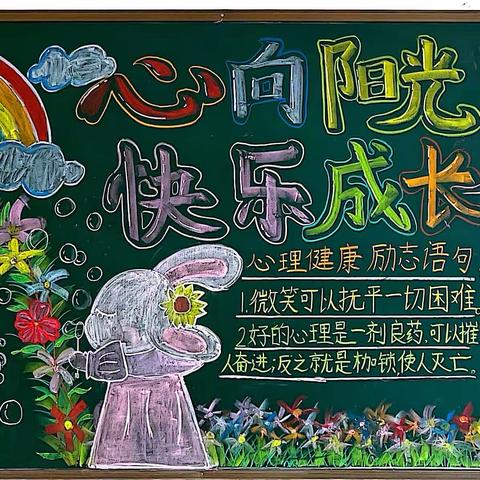 心向阳光
快乐成长
心理健康 励志语句
1.微笑可以抚平一切困难。
2好的心理是一剂良药.可以摧
人奋进;反之就是枷锁使人灭亡。